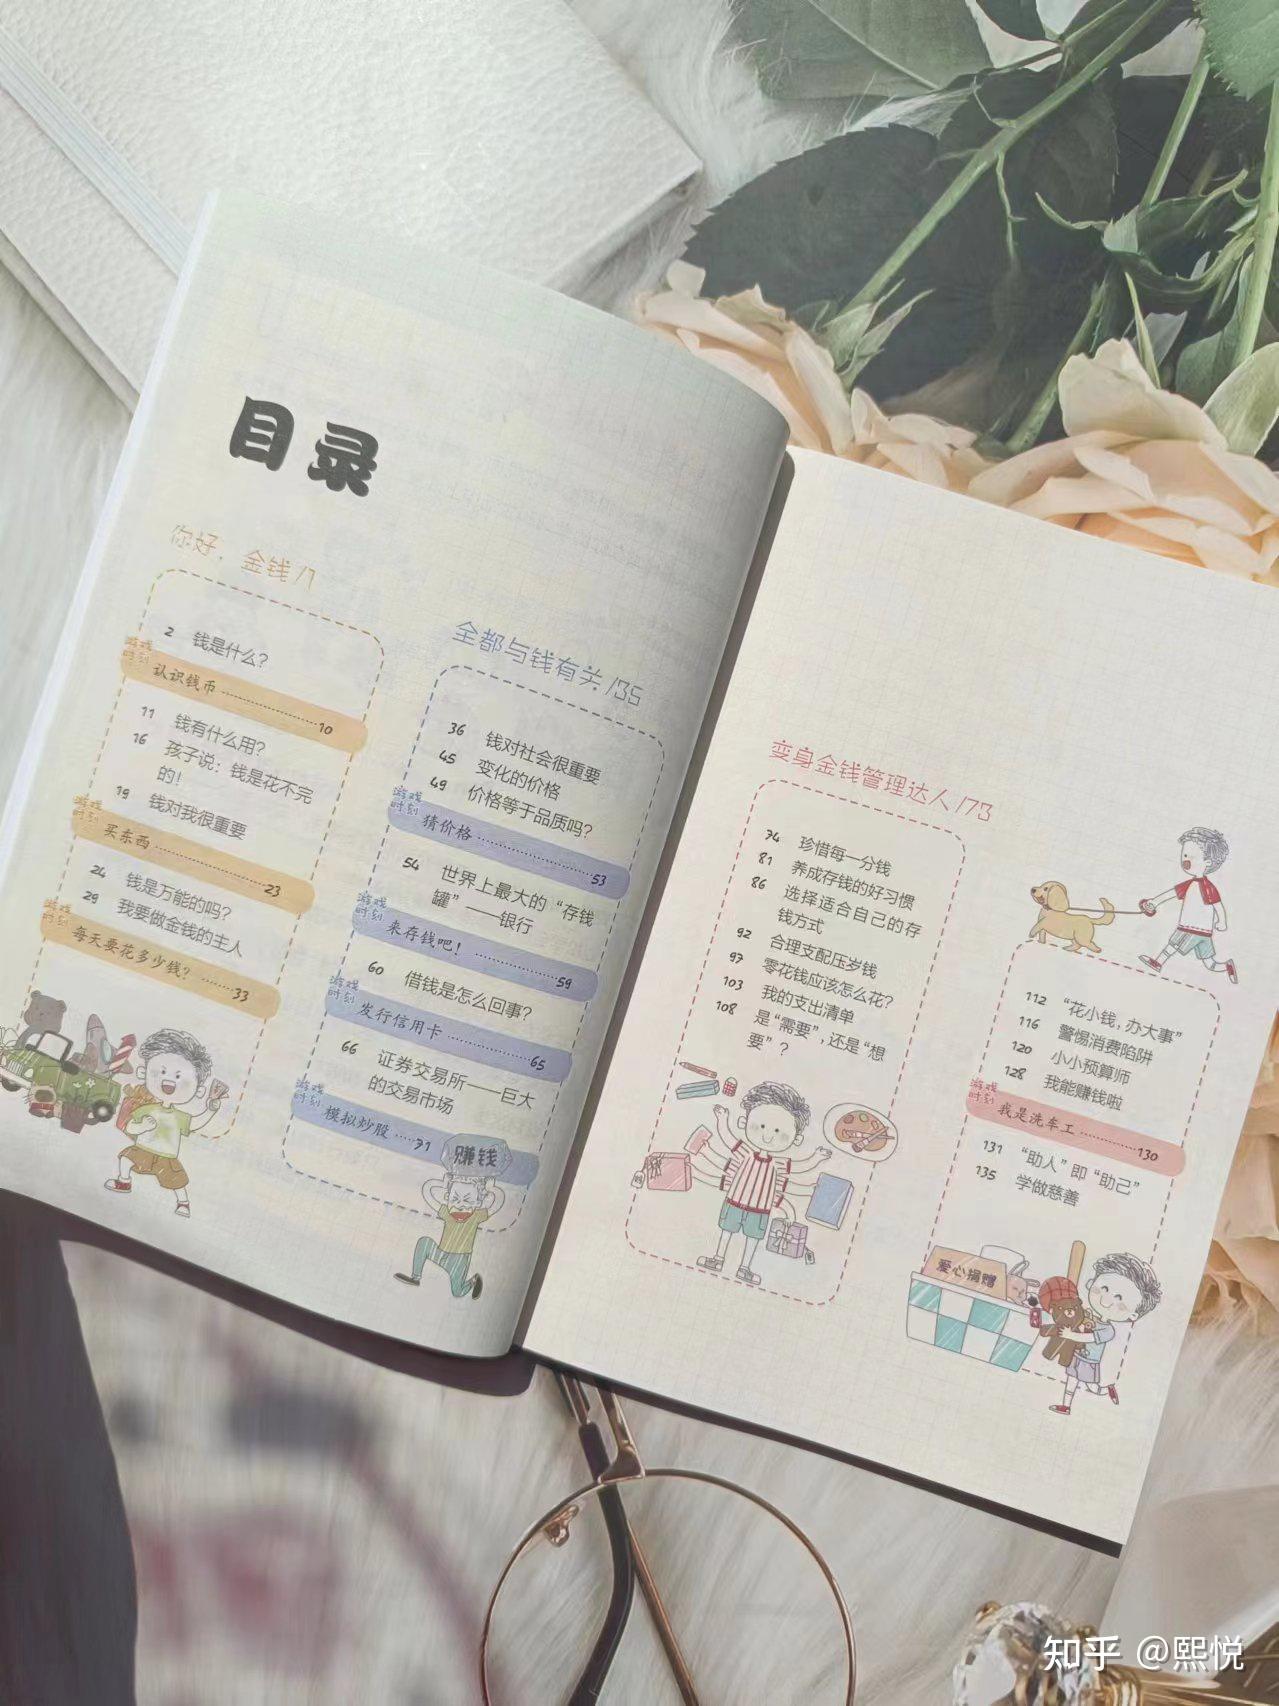 目录
你好，金钱/1
2 钱是什么？
游戏
时刻
认识钱币 10
11 钱有什么用？
16 孩子说：钱是花不完
的！
19 钱对我很重要
游戏
时刻
买东西 23
24 钱是万能的吗？
29 我要做金钱的主人
游戏
时刻
每天要花多少钱？ 33
全都与钱有关/35
36 钱对社会很重要
45 变化的价格
49 价格等于品质吗？
游戏
时刻
猜价格 53
54 世界上最大的“存钱
罐”——银行
游戏
时刻
来存钱吧！ 59
60 借钱是怎么回事？
游戏
时刻
发行信用卡 65
66 证券交易所——巨大
的交易市场
游戏
时刻
模拟炒股 71
赚钱
变身金钱管理达人/73
74 珍惜每一分钱
81 养成存钱的好习惯
86 选择适合自己的存
钱方式
92 合理支配压岁钱
97 零花钱应该怎么花？
103 我的支出清单
108 是“需要”，还是“想
要”？
112 “花小钱，办大事”
116 警惕消费陷阱
120 小小预算师
128 我能赚钱啦
游戏
时刻
我是洗车工 130
131 “助人”即“助己”
135 学做慈善
爱心捐赠
知乎 @熙悦